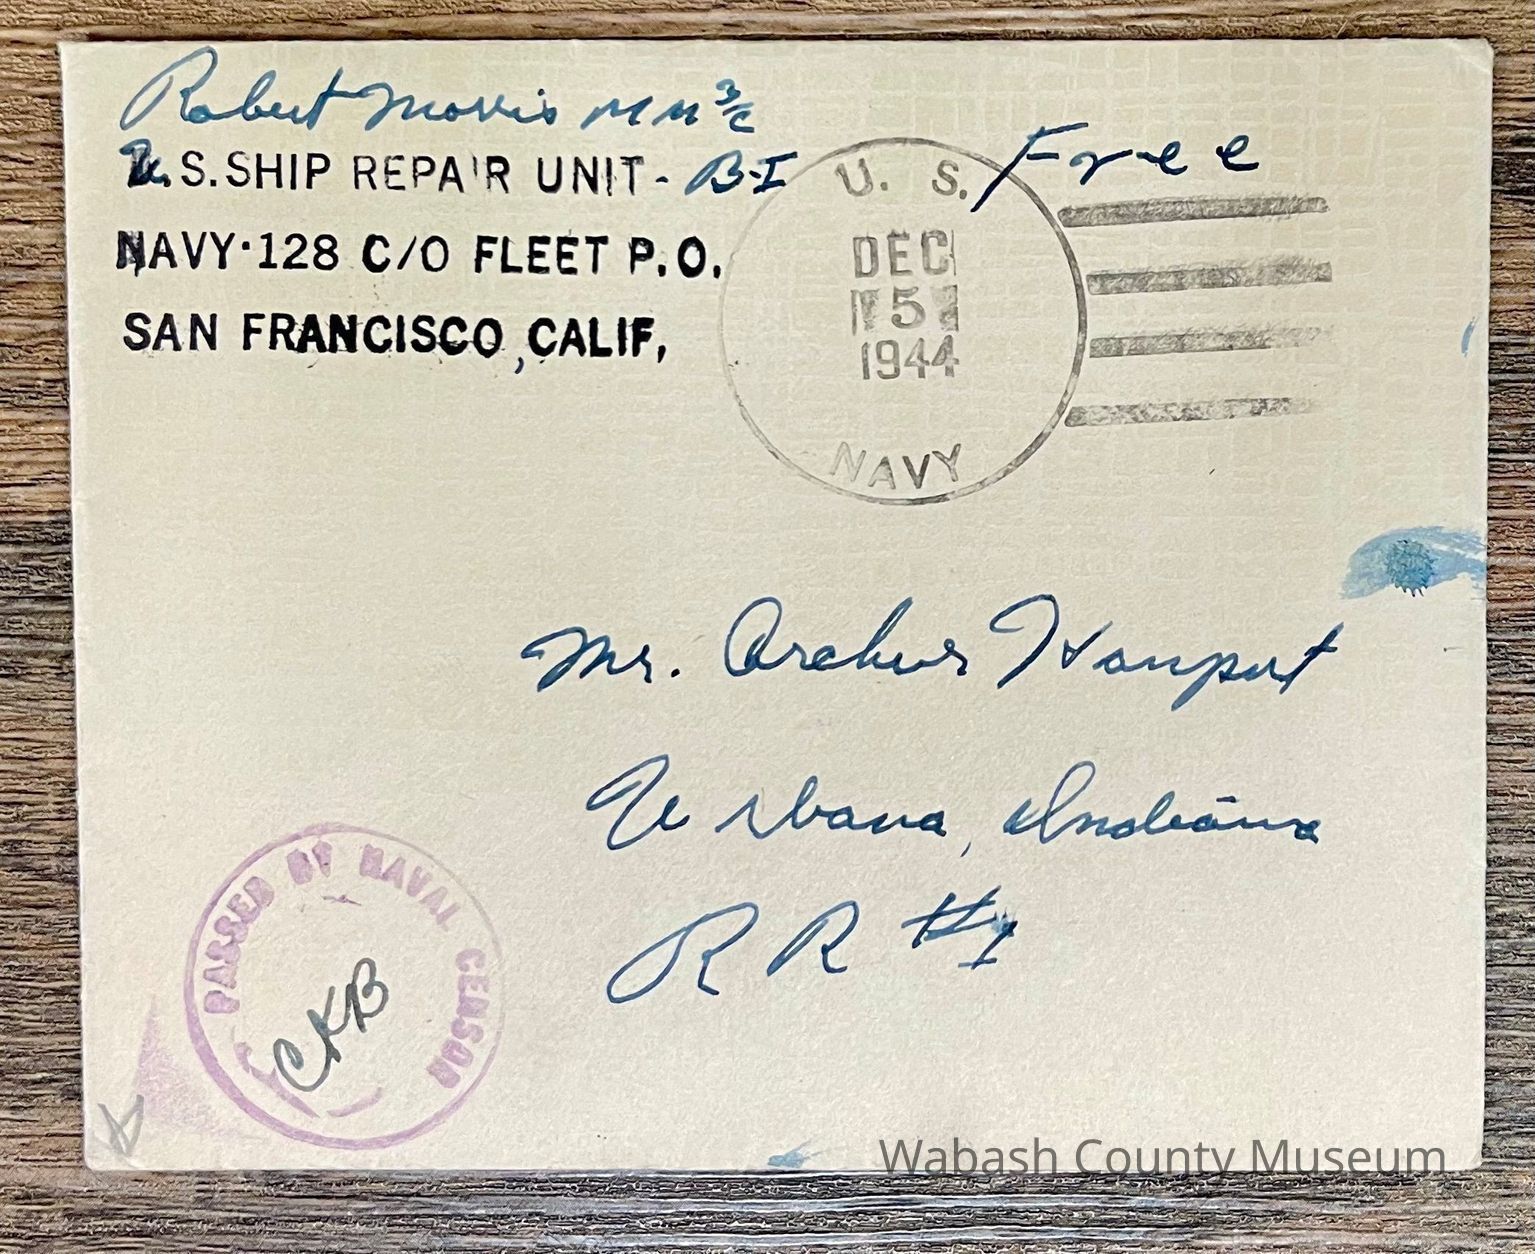 Robert Morris MM 3/c
U.S. SHIP REPAIR UNIT - B-I
NAVY·128 C/O FLEET P.O.
SAN FRANCISCO, CALIF,
Free
U. S.
DEC
5
1944
NAVY
Mr. Archur Haupert
Urbana, Indiana
RR #1
PASSED BY NAVAL CENSOR
CKB
Wabash County Museum